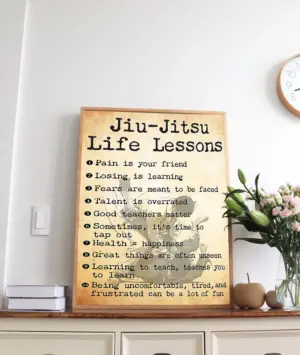 Jiu-Jitsu
Life Lessons
1 Pain is your friend
2 Losing is learning
3 Fears are meant to be faced
4 Talent is overrated
5 Good teachers matter
6 Sometimes, it's time to
tap out
7 Health = happiness
8 Great things are often unseen
9 Learning to teach, teaches you
to learn
10 Being uncomfortable, tired, and
frustrated can be a lot of fun